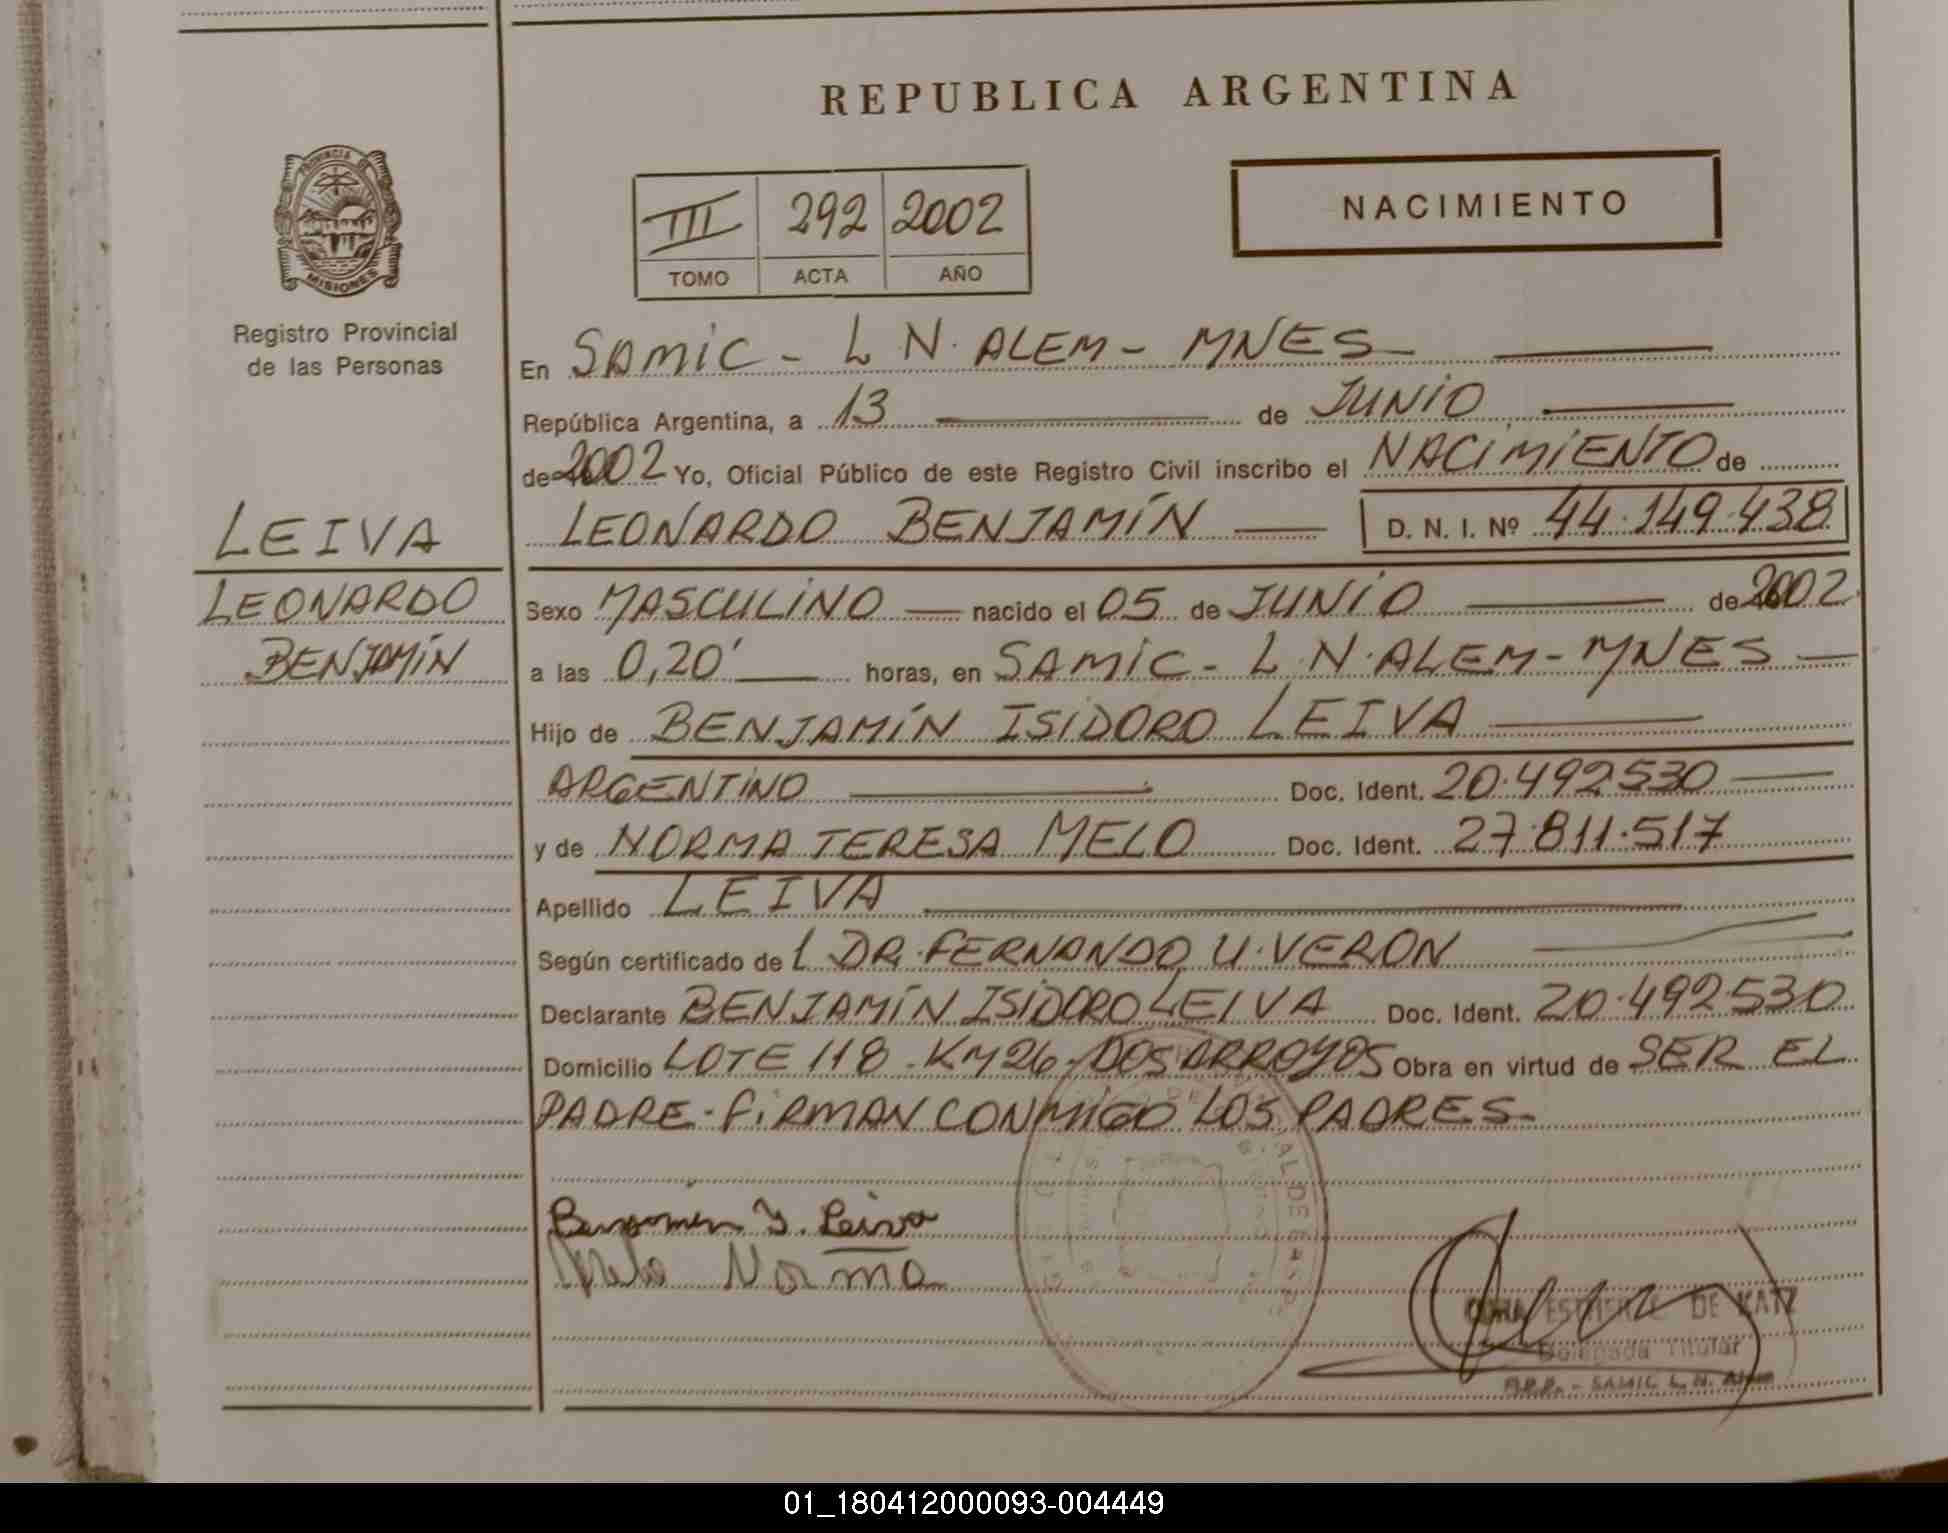 REPUBLICA ARGENTINA
PROVINCIA DE
MISIONES
Registro Provincial
de las Personas
III 292 2002
TOMO ACTA AÑO
NACIMIENTO
En SAMIC - L N. ALEM - MNES
República Argentina, a 13 de JUNIO
de 2002 Yo, Oficial Público de este Registro Civil inscribo el NACIMIENTO de
LEIVA
LEONARDO BENJAMÍN D. N. I. Nº 44.149.438
LEONARDO
Sexo MASCULINO nacido el 05 de JUNIO de 2002
BENJAMÍN
a las 0,20' horas, en SAMIC - L.N. ALEM - MNES
Hijo de BENJAMÍN ISIDORO LEIVA
ARGENTINO Doc. Ident. 20.492530
y de NORMA TERESA MELO Doc. Ident. 27.811.517
Apellido LEIVA
Según certificado de L DR. FERNANDO U. VERON
Declarante BENJAMÍN ISIDORO LEIVA Doc. Ident. 20.492530
Domicilio LOTE 118 - KM 26 - DOS ARROYOS Obra en virtud de SER EL
PADRE - FIRMAN CONMIGO LOS PADRES -
Benjamin I. Leiva
Melo Norma
DE KATZ
Delegada Titular
R.P.P. - SAMIC L. N. Alem
01_180412000093-004449